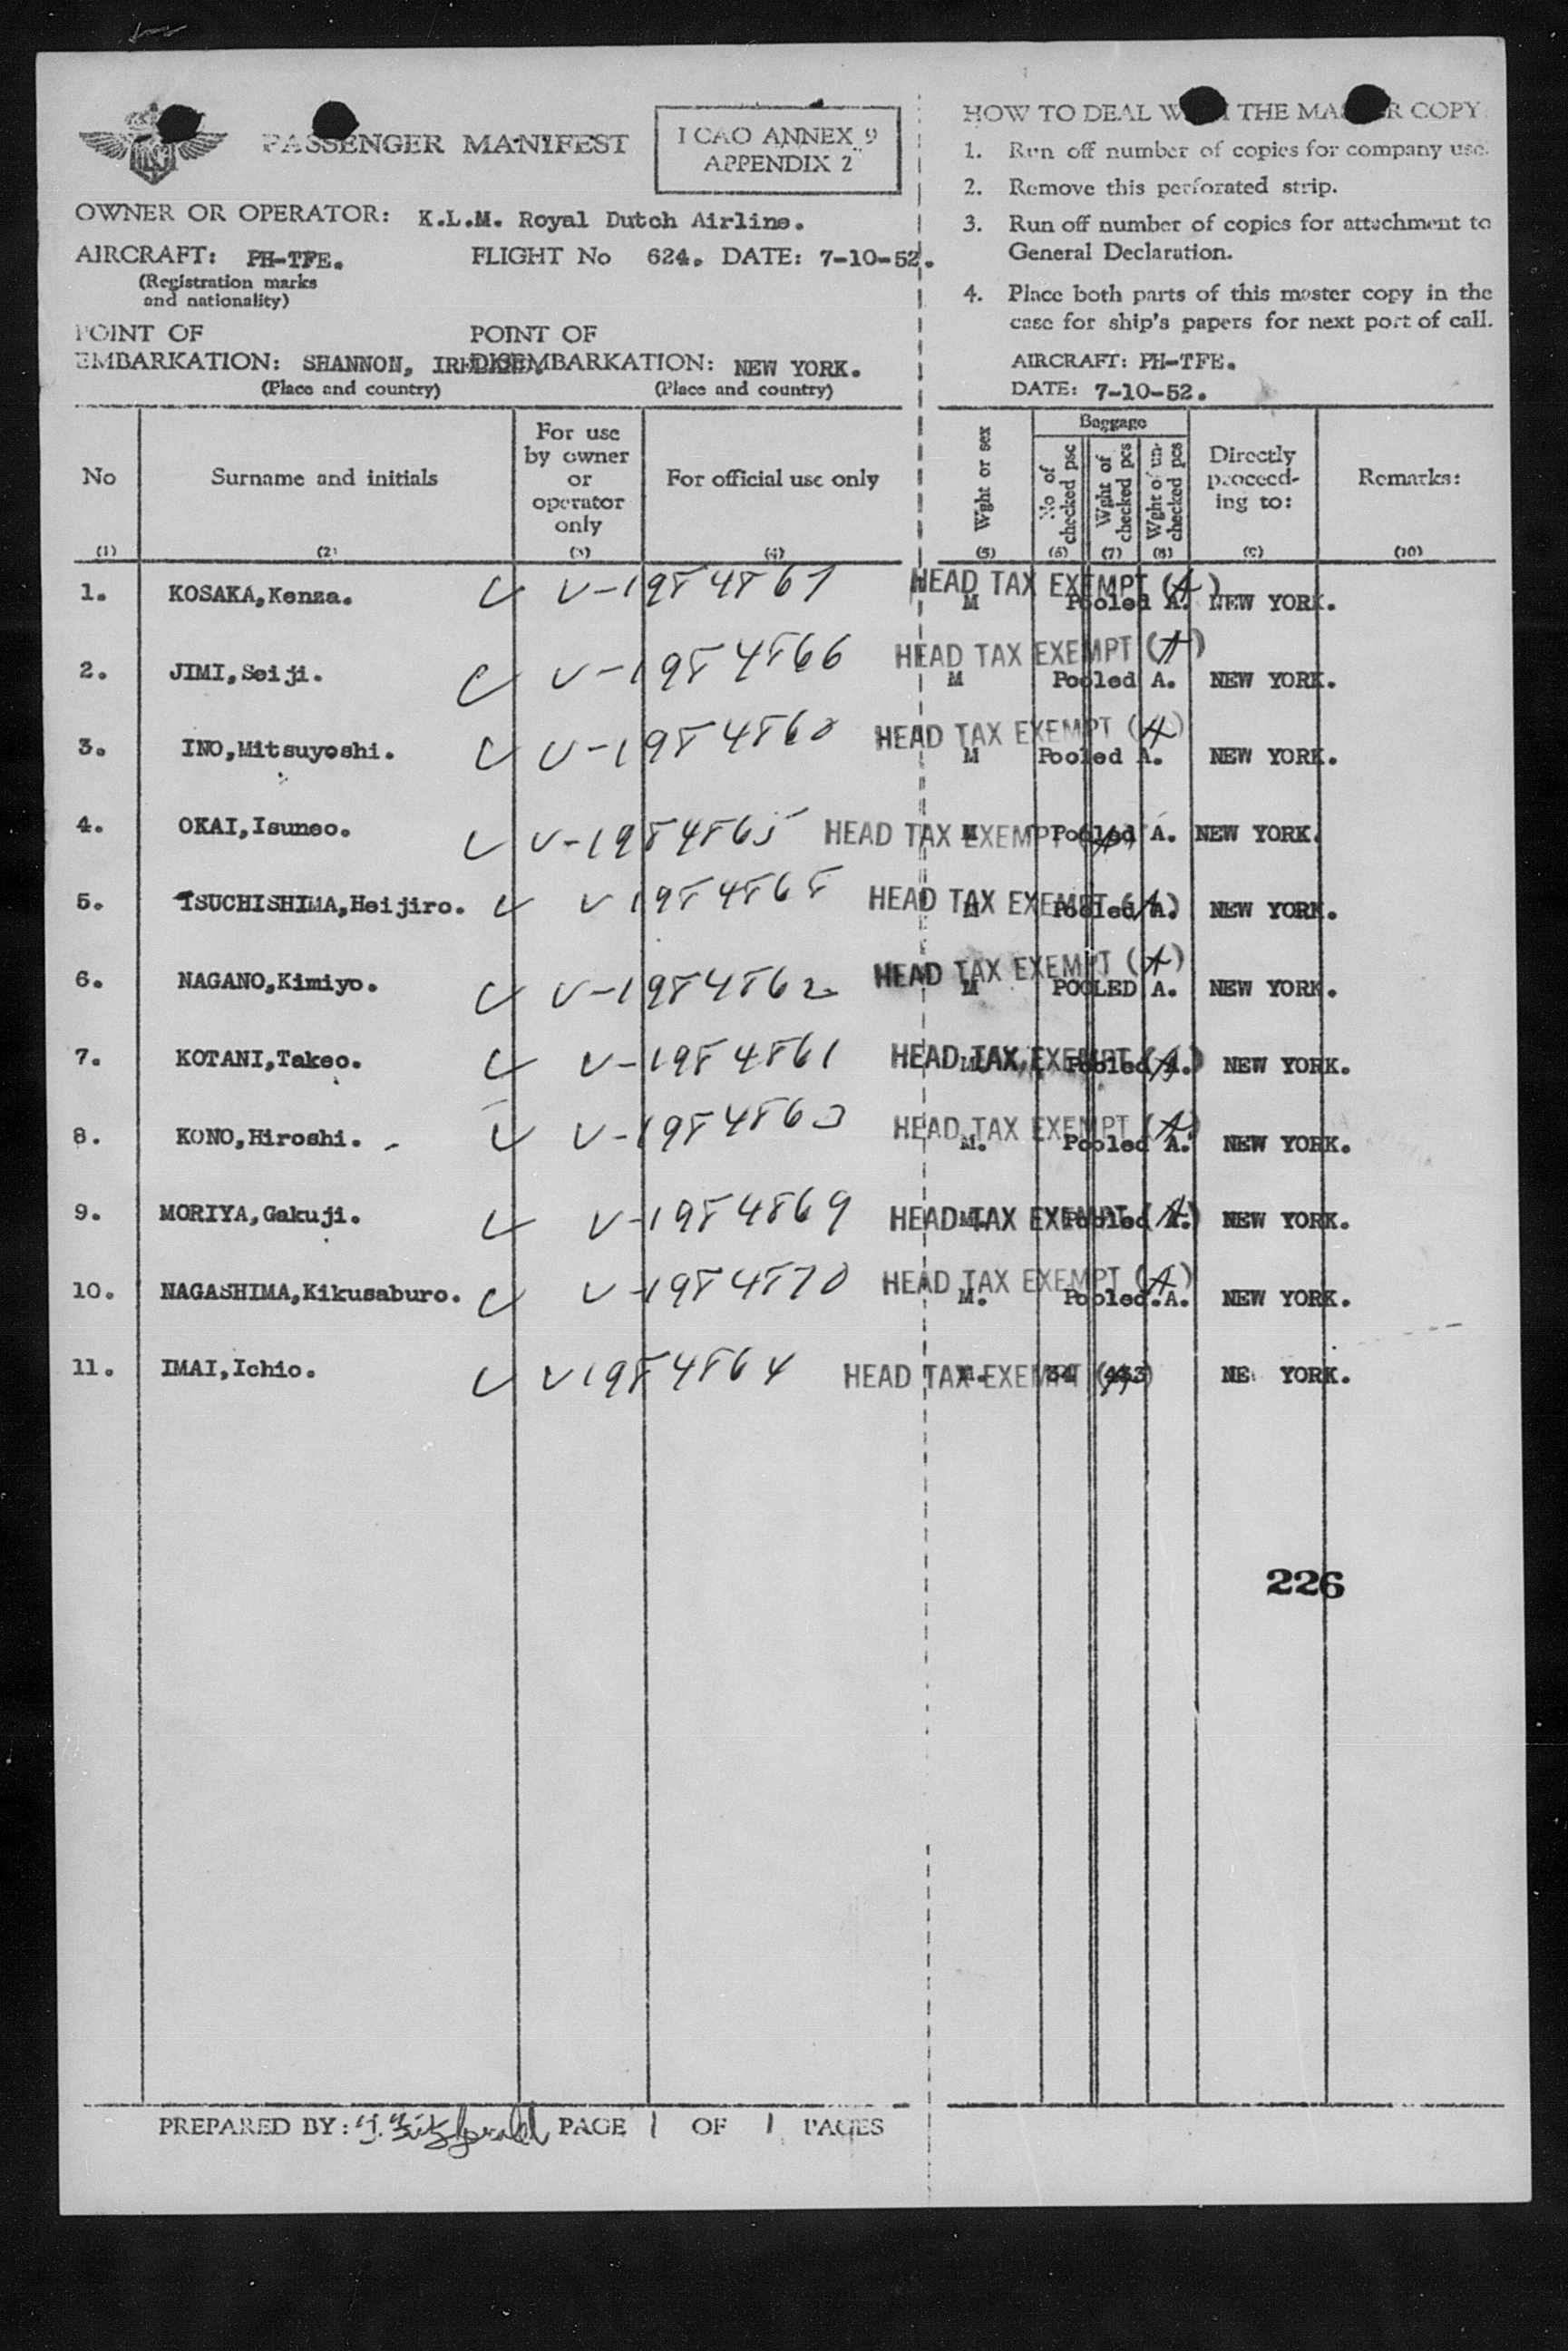 PASSENGER MANIFEST
ICAO ANNEX 9
APPENDIX 2
OWNER OR OPERATOR: K.L.M. Royal Dutch Airline.
AIRCRAFT: PH-TFE. FLIGHT No 624. DATE: 7-10-52.
(Registration marks
and nationality)
POINT OF POINT OF
EMBARKATION: SHANNON, DISEMBARKATION: NEW YORK.
(Place and country) (Place and country)
HOW TO DEAL THE COPY
1. Run off number of copies for company use.
2. Remove this perforated strip.
3. Run off number of copies for attachment to
General Declaration.
4. Place both parts of this master copy in the
case for ship's papers for next port of call.
AIRCRAFT: PH-TFE.
DATE: 7-10-52.
No Surname and initials For use by owner or operator only For official use only Wght or sex Baggage No of checked psc Wght of checked pcs Wght of un-checked pcs Directly proceed-ing to: Remarks:
(1) (2) (3) (4) (5) (6) (7) (8) (9) (10)
1. KOSAKA,Kenza. V-1984867 HEAD TAX EXEMPT (A) M Pooled A. NEW YORK.
2. JIMI,Seiji. V-1984866 HEAD TAX EXEMPT (A) M Pooled A. NEW YORK.
3. INO,Mitsuyoshi. V-1984860 HEAD TAX EXEMPT (A) M Pooled A. NEW YORK.
4. OKAI,Isuneo. V-1984865 HEAD TAX EXEMPT M Pooled A. NEW YORK.
5. TSUCHISHIMA,Heijiro. V 1984868 HEAD TAX EXEMPT (A) M Pooled A. NEW YORK.
6. NAGANO,Kimiyo. V-1984862 HEAD TAX EXEMPT (A) M POOLED A. NEW YORK.
7. KOTANI,Takeo. V-1984861 HEAD TAX EXEMPT (A) M. Pooled A. NEW YORK.
8. KONO,Hiroshi. V-1984863 HEAD TAX EXEMPT (A) M. Pooled A. NEW YORK.
9. MORIYA,Gakuji. V-1984869 HEAD TAX EXEMPT (A) M. Pooled A. NEW YORK.
10. NAGASHIMA,Kikusaburo. V-1984870 HEAD TAX EXEMPT (A) M. Pooled.A. NEW YORK.
11. IMAI,Ichio. V1984864 HEAD TAX EXEMPT 34 NE YORK.
226
PREPARED BY: J. Fitzgerald PAGE 1 OF 1 PAGES